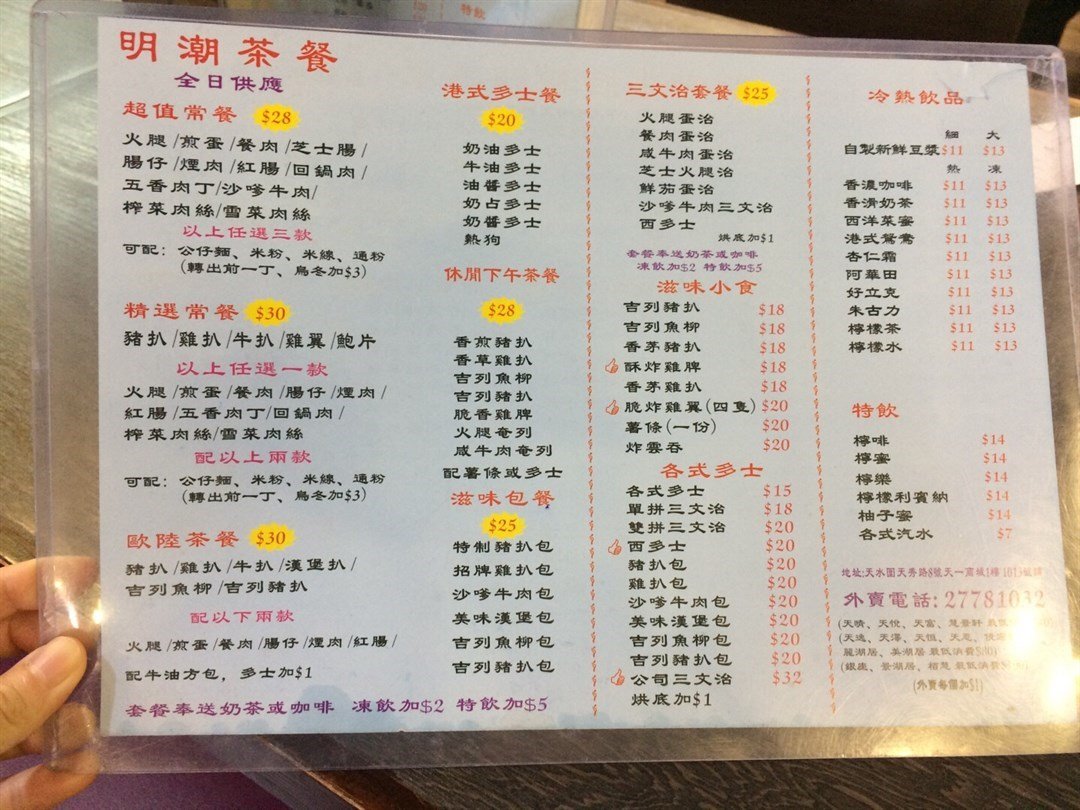 明潮茶餐
全日供應
超值常餐 $28
火腿/煎蛋/餐肉/芝士腸/
腸仔/煙肉/紅腸/回鍋肉/
五香肉丁/沙嗲牛肉/
榨菜肉絲/雪菜肉絲
以上任選三款
可配：公仔麵、米粉、米線、通粉
(轉出前一丁、烏冬加$3)
精選常餐 $30
豬扒/雞扒/牛扒/雞翼/鮑片
以上任選一款
火腿/煎蛋/餐肉/腸仔/煙肉/
紅腸/五香肉丁/回鍋肉/
榨菜肉絲/雪菜肉絲
配以上兩款
可配：公仔麵、米粉、米線、通粉
(轉出前一丁、烏冬加$3)
歐陸茶餐 $30
豬扒/雞扒/牛扒/漢堡扒/
吉列魚柳/吉列豬扒
配以下兩款
火腿/煎蛋/餐肉/腸仔/煙肉/紅腸/
配牛油方包，多士加$1
套餐奉送奶茶或咖啡 凍飲加$2 特飲加$5
港式多士餐
$20
奶油多士
牛油多士
油醬多士
奶占多士
奶醬多士
熱狗
休閒下午茶餐
$28
香煎豬扒
香草雞扒
吉列魚柳
吉列豬扒
脆香雞脾
火腿奄列
咸牛肉奄列
配薯條或多士
滋味包餐
$25
特制豬扒包
招牌雞扒包
沙嗲牛肉包
美味漢堡包
吉列魚柳包
吉列豬扒包
三文治套餐 $25
火腿蛋治
餐肉蛋治
咸牛肉蛋治
芝士火腿治
鮮茄蛋治
沙嗲牛肉三文治
西多士
烘底加$1
套餐奉送奶茶或咖啡
凍飲加$2 特飲加$5
滋味小食
吉列豬扒 $18
吉列魚柳 $18
香茅豬扒 $18
酥炸雞脾 $18
香茅雞扒 $18
脆炸雞翼(四隻) $20
薯條(一份) $20
炸雲吞 $20
各式多士
各式多士 $15
單拼三文治 $18
雙拼三文治 $20
西多士 $20
豬扒包 $20
雞扒包 $20
沙嗲牛肉包 $20
美味漢堡包 $20
吉列魚柳包 $20
吉列豬扒包 $20
公司三文治 $32
烘底加$1
冷熱飲品
細 大
自製新鮮豆漿 $11 $13
熱 凍
香濃咖啡 $11 $13
香滑奶茶 $11 $13
西洋菜蜜 $11 $13
港式鴛鴦 $11 $13
杏仁霜 $11 $13
阿華田 $11 $13
好立克 $11 $13
朱古力 $11 $13
檸檬茶 $11 $13
檸檬水 $11 $13
特飲
檸啡 $14
檸蜜 $14
檸樂 $14
檸檬利賓納 $14
柚子蜜 $14
各式汽水 $7
地址:天水圍天秀路8號天一商城1樓1013號舖
外賣電話: 27781032
(天晴、天悅、天富、慧景軒 最低
(天逸、天澤、天恒、天恩、
麗湖居、美湖居 最低消費$
(銀座、景湖居、栢慧 最低消費$
(外賣每個加$1)